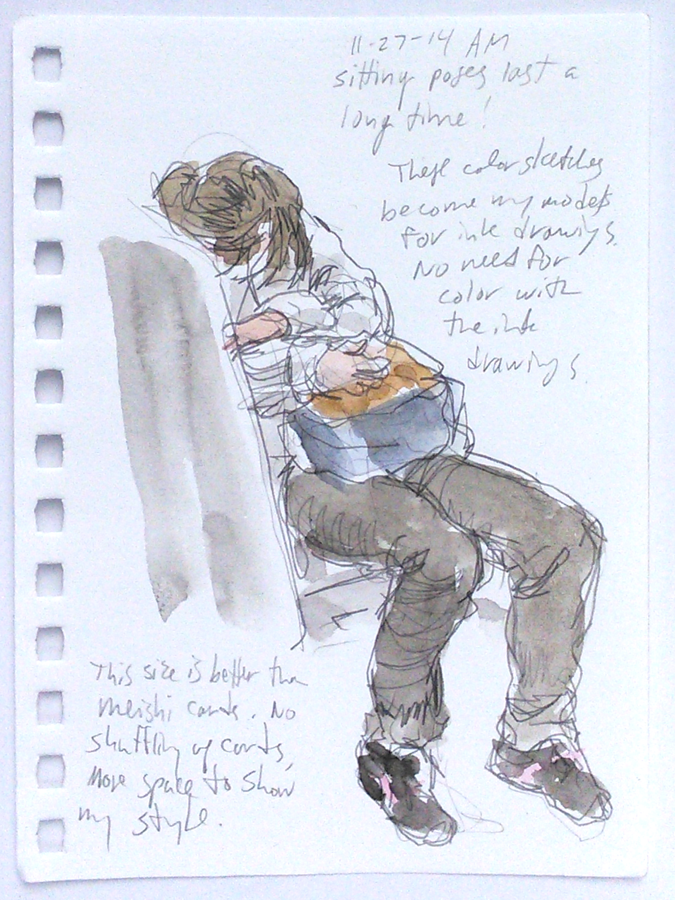 11-27-14 AM
sitting poses last a
long time!
These color sketches
become my models
for ink drawings.
No need for
color with
the ink
drawings.
This size is better than
meishi cards. No
shuffling of cards,
More space to show
my style.